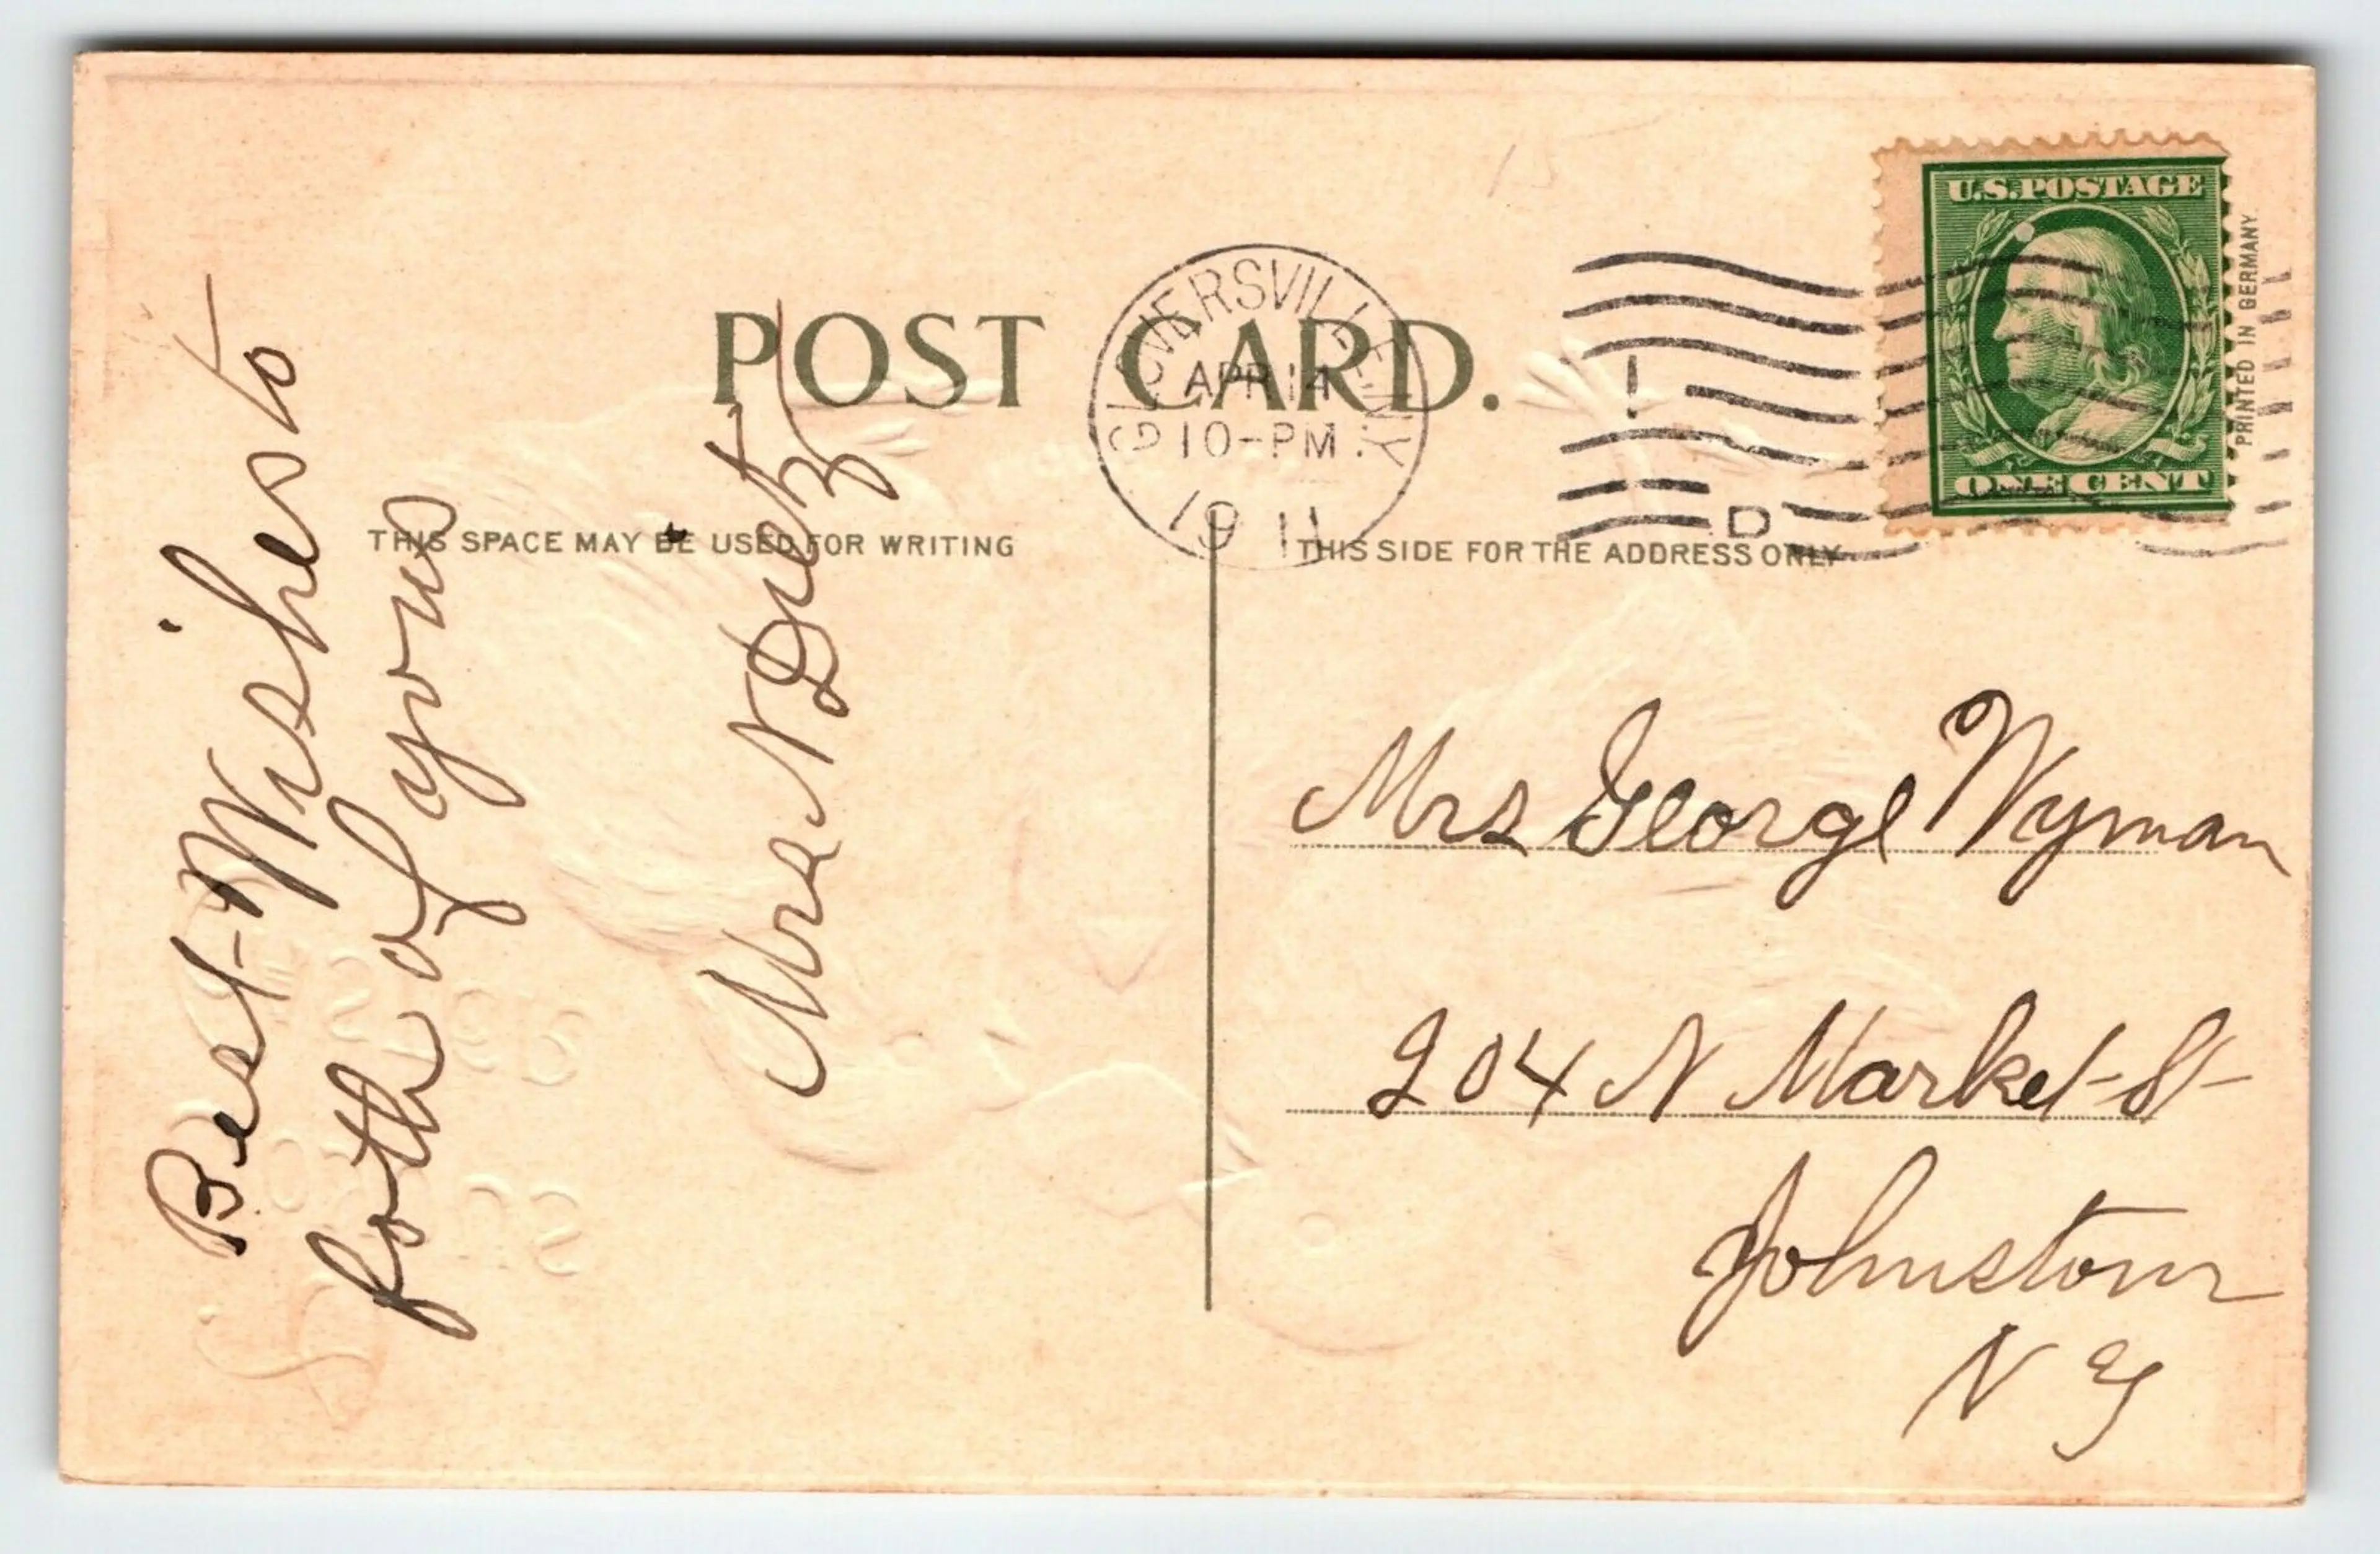 U.S. POSTAGE
ONE CENT
PRINTED IN GERMANY.
POST CARD.
GLOVERSVILLE, N.Y.
APR 14
10-PM
1911
D
THIS SPACE MAY BE USED FOR WRITING
THIS SIDE FOR THE ADDRESS ONLY
Best Wishes to
both of yous
Mrs N Dietz
Mrs George Wyman
204 N Market St
Johnstown
N Y